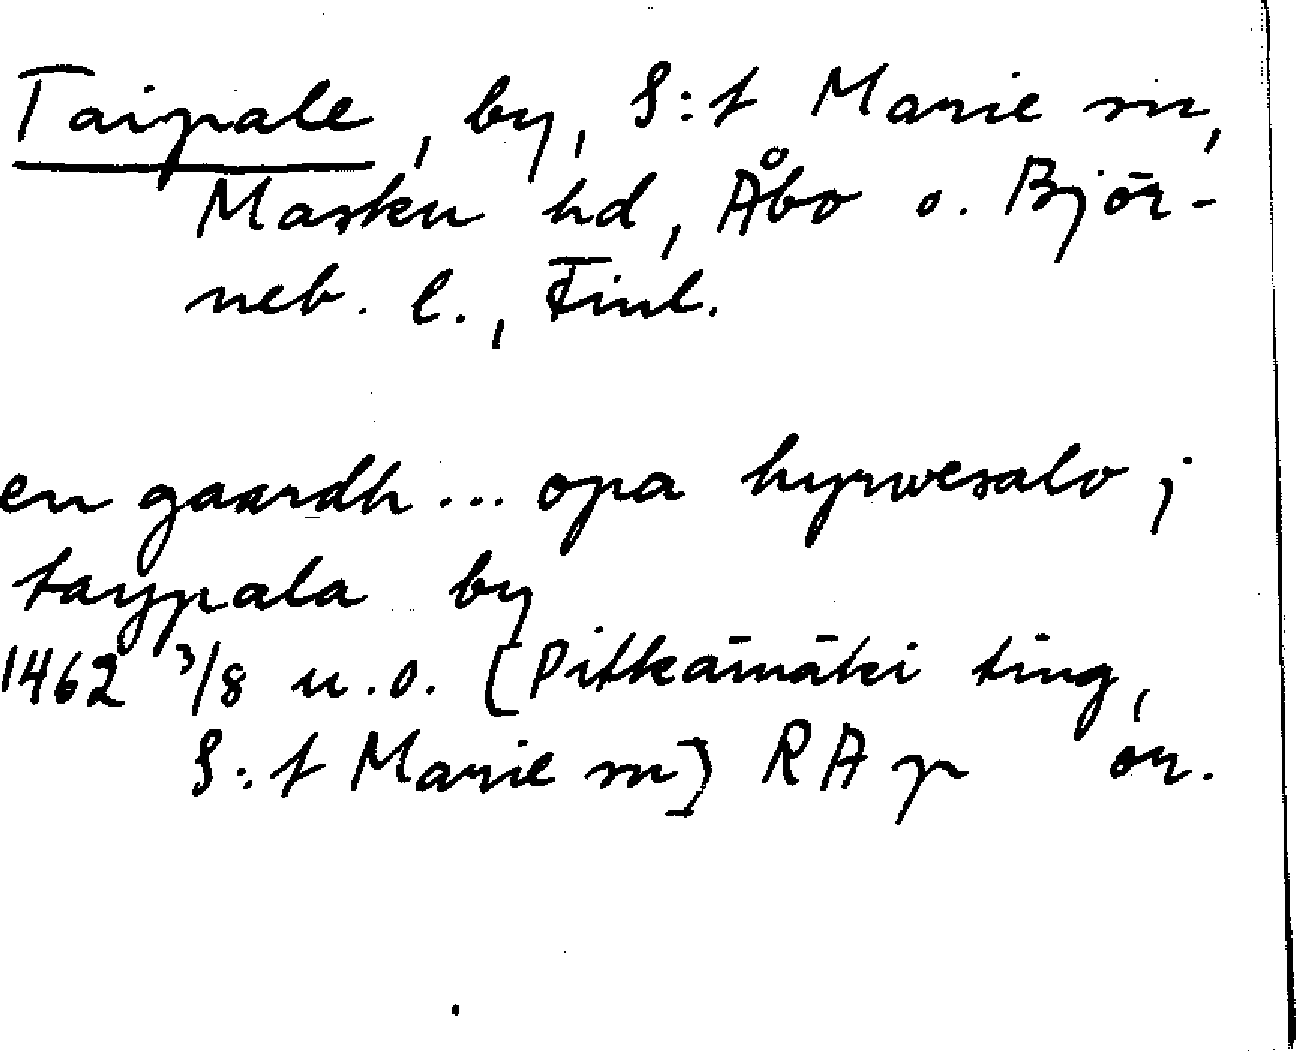 Taipale, by, S:t Marie sn,
Masku hd, Åbo o. Björ-
neb. l., Finl.
en gaardh... opa hyrwesalo j
taypala by
1462 3/8 u.o. [Pitkämäki ting,
S:t Marie sn] RAp or.